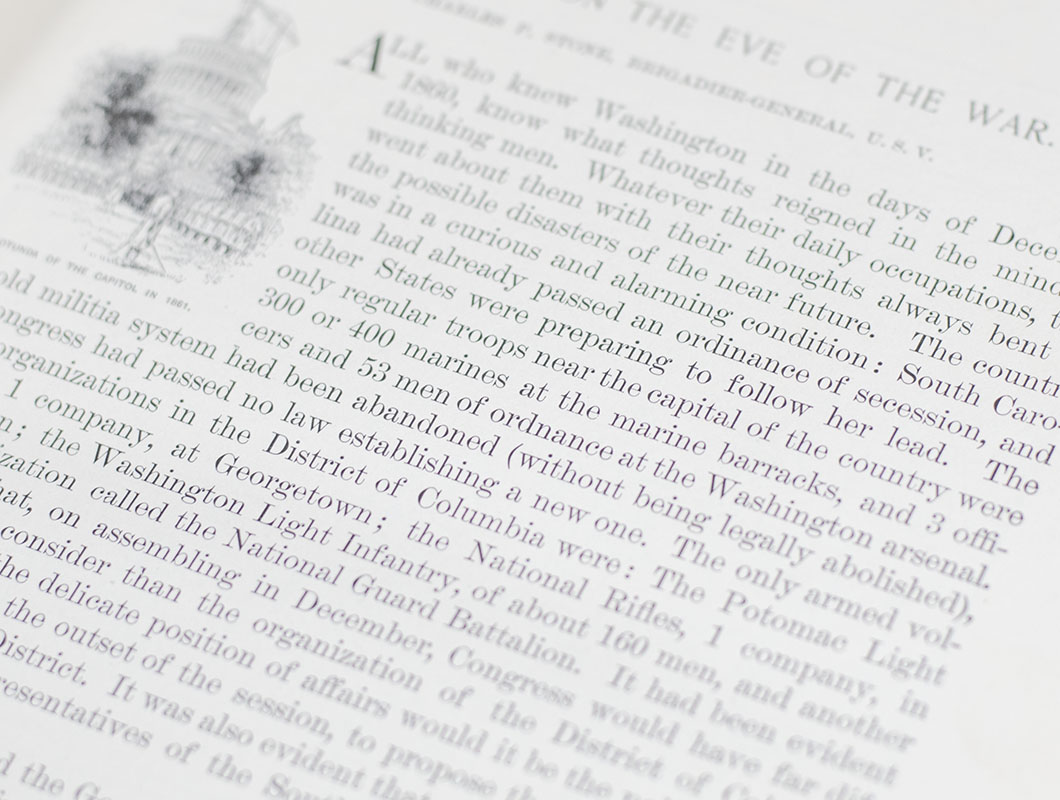 ON THE EVE OF THE WAR.
CHARLES P. STONE, BRIGADIER-GENERAL, U. S. V.
ALL who knew Washington in the days of Dece
1860, know what thoughts reigned in the mind
thinking men. Whatever their daily occupations, t
went about them with their thoughts always bent
the possible disasters of the near future. The count
was in a curious and alarming condition: South Caro-
lina had already passed an ordinance of secession, and
other States were preparing to follow her lead. The
only regular troops near the capital of the country were
300 or 400 marines at the marine barracks, and 3 offi-
cers and 53 men of ordnance at the Washington arsenal.
OTUNDA OF THE CAPITOL IN 1861.
old militia system had been abandoned (without being legally abolished),
ongress had passed no law establishing a new one. The only armed vol-
organizations in the District of Columbia were: The Potomac Light
1 company, at Georgetown; the National Rifles, 1 company, in
n; the Washington Light Infantry, of about 160 men, and another
zation called the National Guard Battalion. It had been evident
hat, on assembling in December, Congress would have far diff
consider than the organization of the District of Col
the delicate position of affairs would it be the
the outset of the session, to propose th
District. It was also evident that
resentatives of the Sout
d the Go